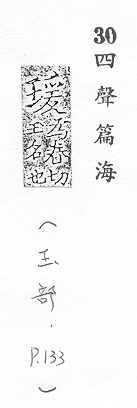 30四聲篇海
瑗
為眷切
玉名也
（玉部．P.133）